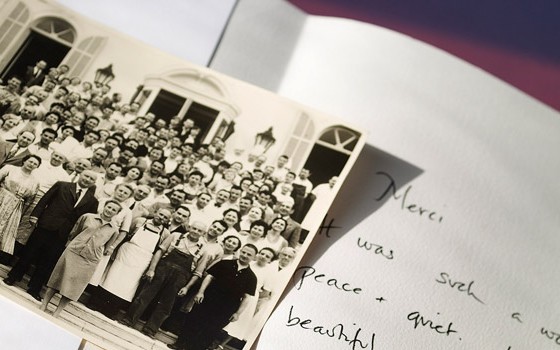 Merci
It was such a
peace + quiet.
beautiful